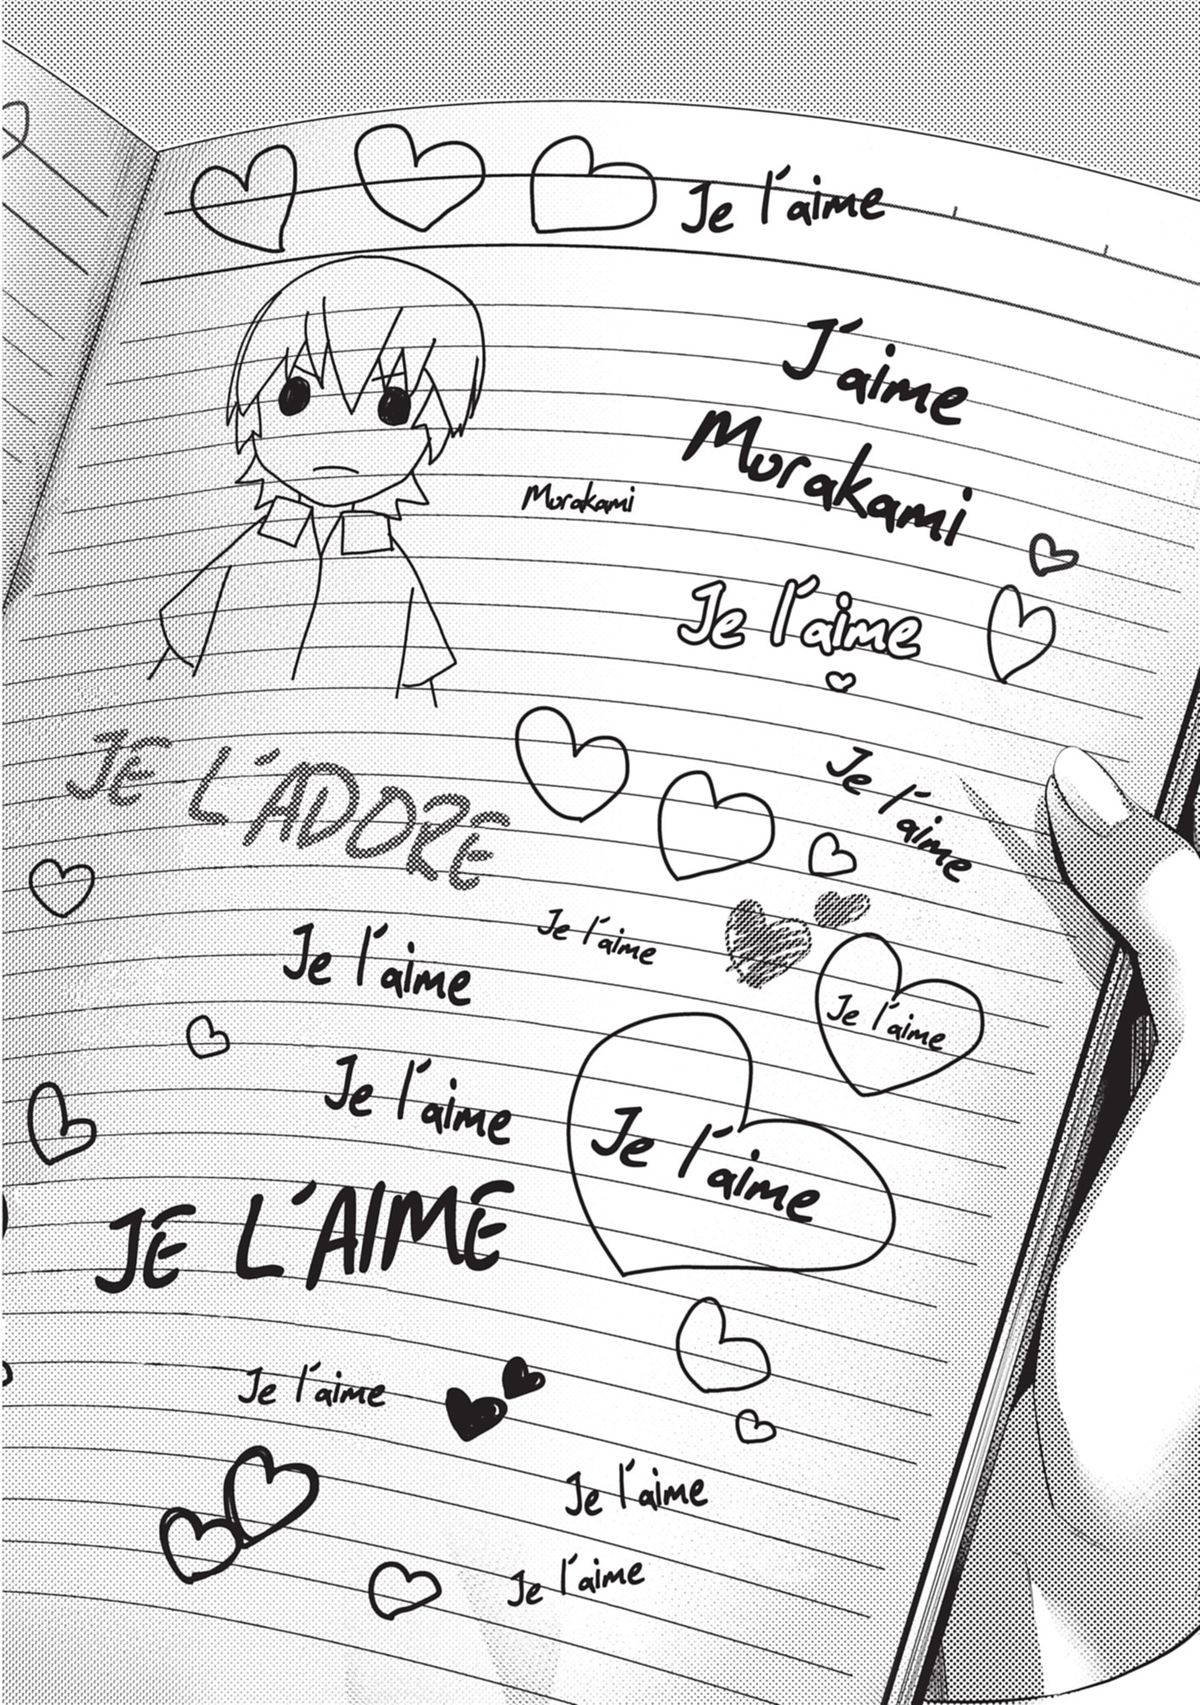 Je l'aime
J'aime
Murakami
Murakami
Je l'aime
JE L'ADORE
Je l'aime
Je l'aime
Je l'aime
Je l'aime
Je l'aime
Je l'aime
JE L'AIME
Je l'aime
Je l'aime
Je l'aime